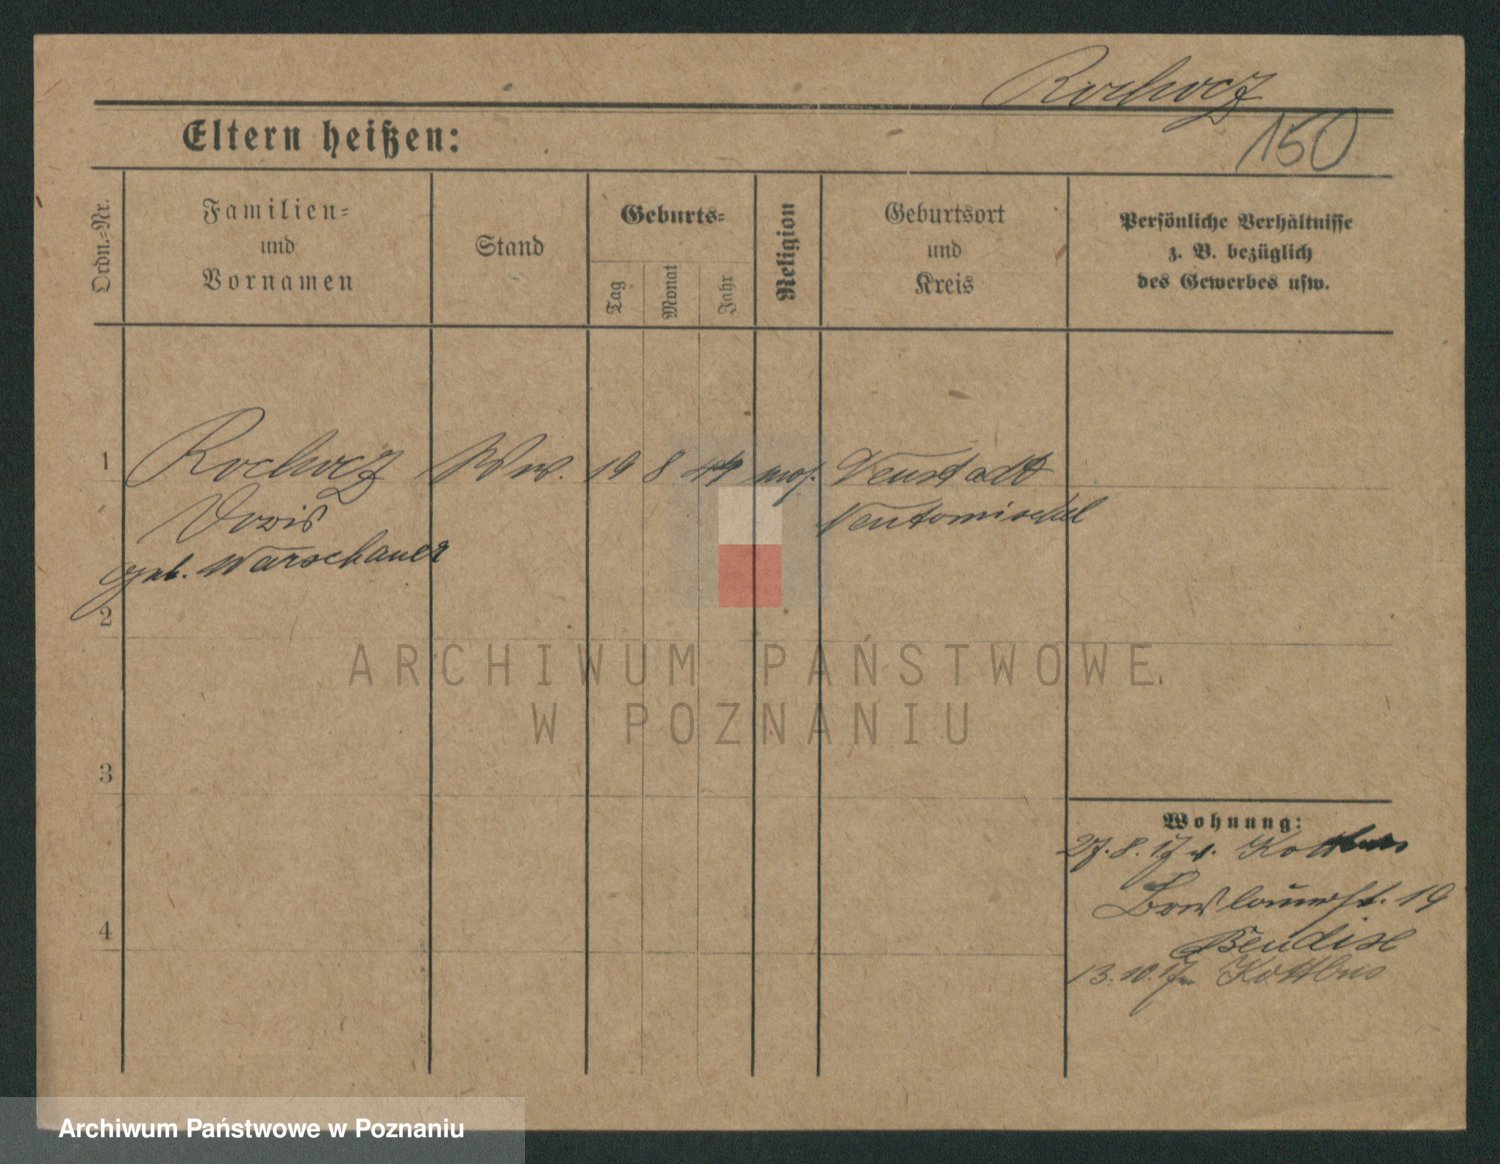 Rochocz
150
Eltern heißen:
Ordn.-Nr.
Familien-
und
Vornamen
Stand
Geburts-
Tag
Monat
Jahr
Religion
Geburtsort
und
Kreis
Persönliche Verhältnisse
z. B. bezüglich
des Gewerbes usw.
1 Rochocz Ww. 19 8 44 mos. Neustadt
Doris Neutomischel
geb. Warschauer
2
ARCHIWUM PAŃSTWOWE
W POZNANIU
3
Wohnung:
27.8.17 v. Kottbus
Breslauerst. 19
4
13.10.17 n Kottbus
Archiwum Państwowe w Poznaniu